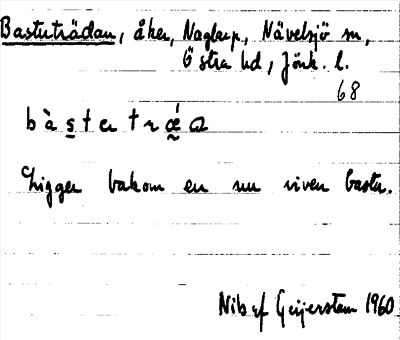 Bastuträdan, åker, Naglarp, Nävelsjö sn,
Östra hd, Jönk. l.
68
Ligger bakom en nu riven bastu.
Nils af Geijerstam 1960